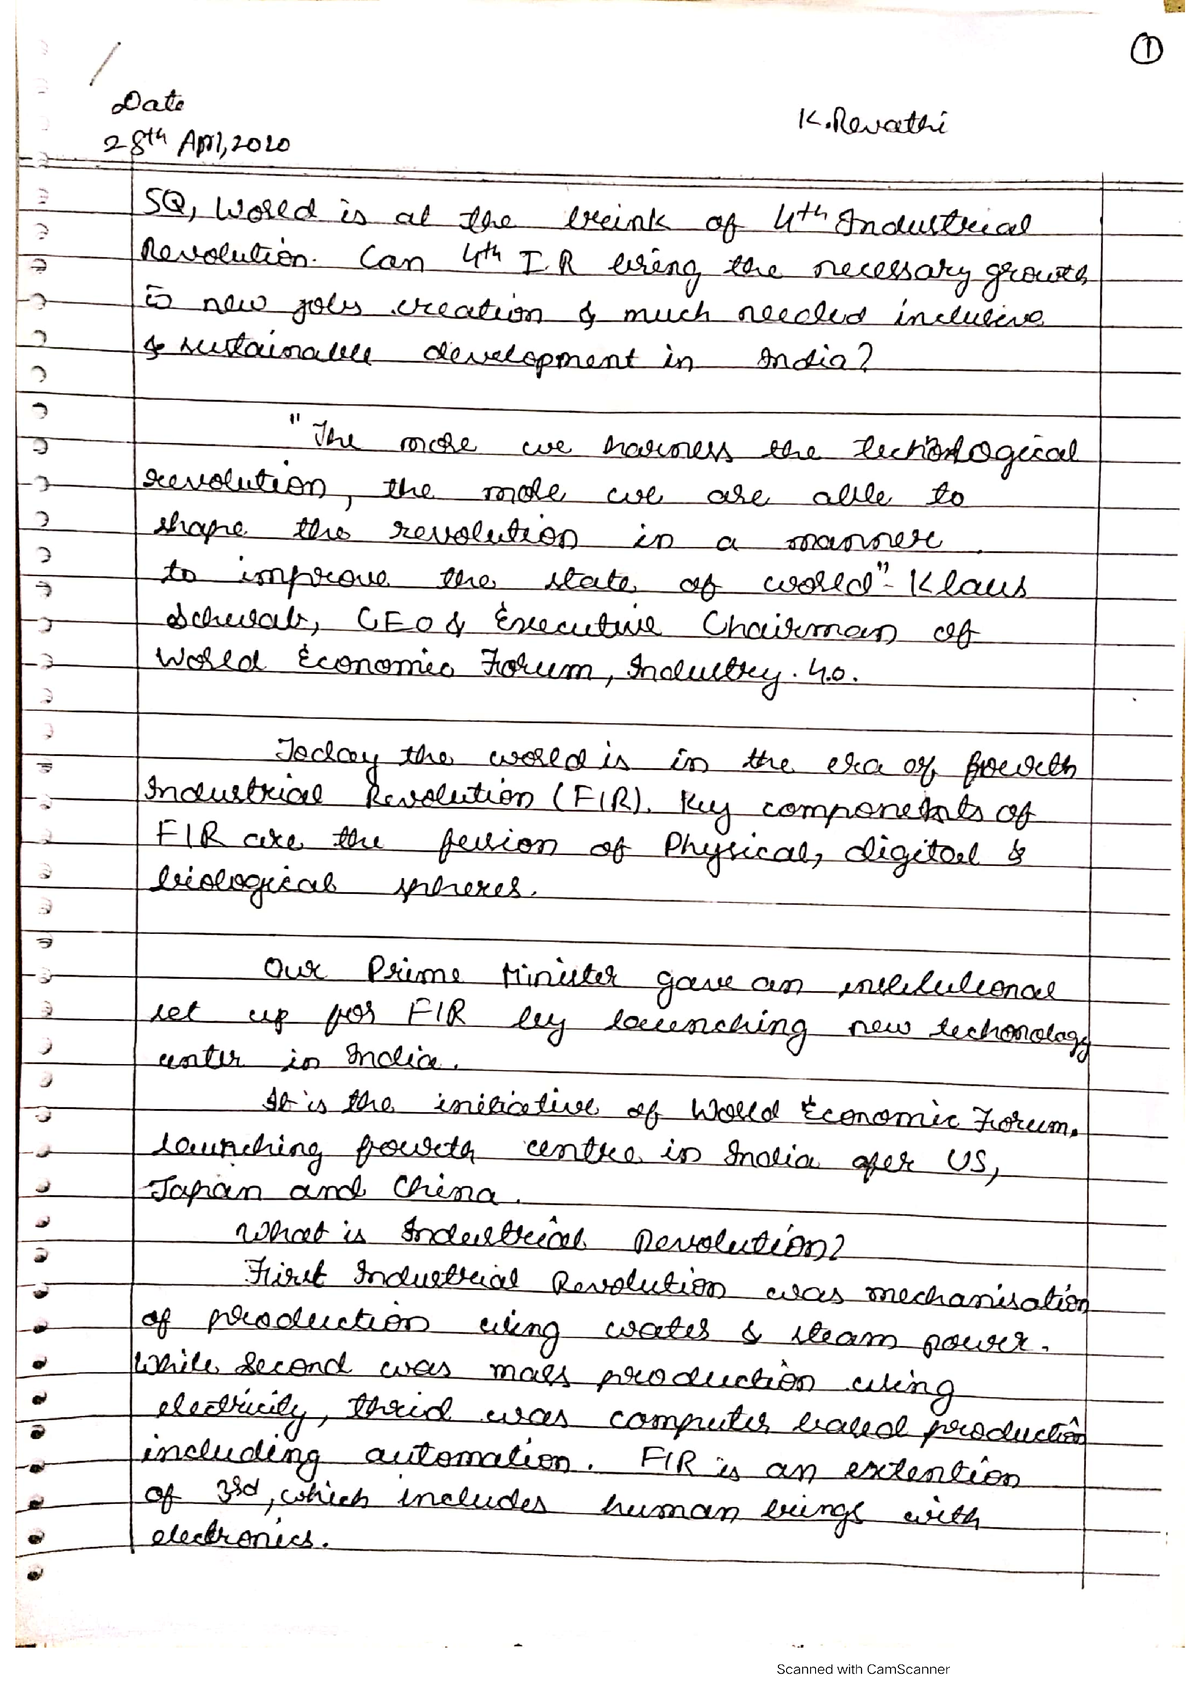 1
Date
K.Revathi
28th Apri,2020
5Q, World is at the brink of 4th Industrial
Revolution. Can 4th I.R bring the necessary growth
in new jobs creation & much needed inclusive
& sustainable development in India?
"The more we harness the technological
revolution, the more we are able to
shape the revolution in a manner
to improve the state of world"- Klaus
Schwab, CEO & Executive Chairman of
World Economic Forum, Industry. 4.0.
Today the world is in the era of fourth
Industrial Revolution (FIR). Key components of
FIR are the fusion of Physical, digital &
biological spheres.
Our Prime Minister gave an institutional
set up for FIR by launching new techonology
center in India.
It is the initiative of World Economic Forum.
launching fourth centre in India after US,
Japan and China.
What is Industrial Revolution?
First Industrial Revolution was mechanisation
of production using water & steam power.
While second was mass production using
electricity, thrid was computer based production
including automation. FIR is an extention
of 3rd, which includes human beings with
electronics.
Scanned with CamScanner